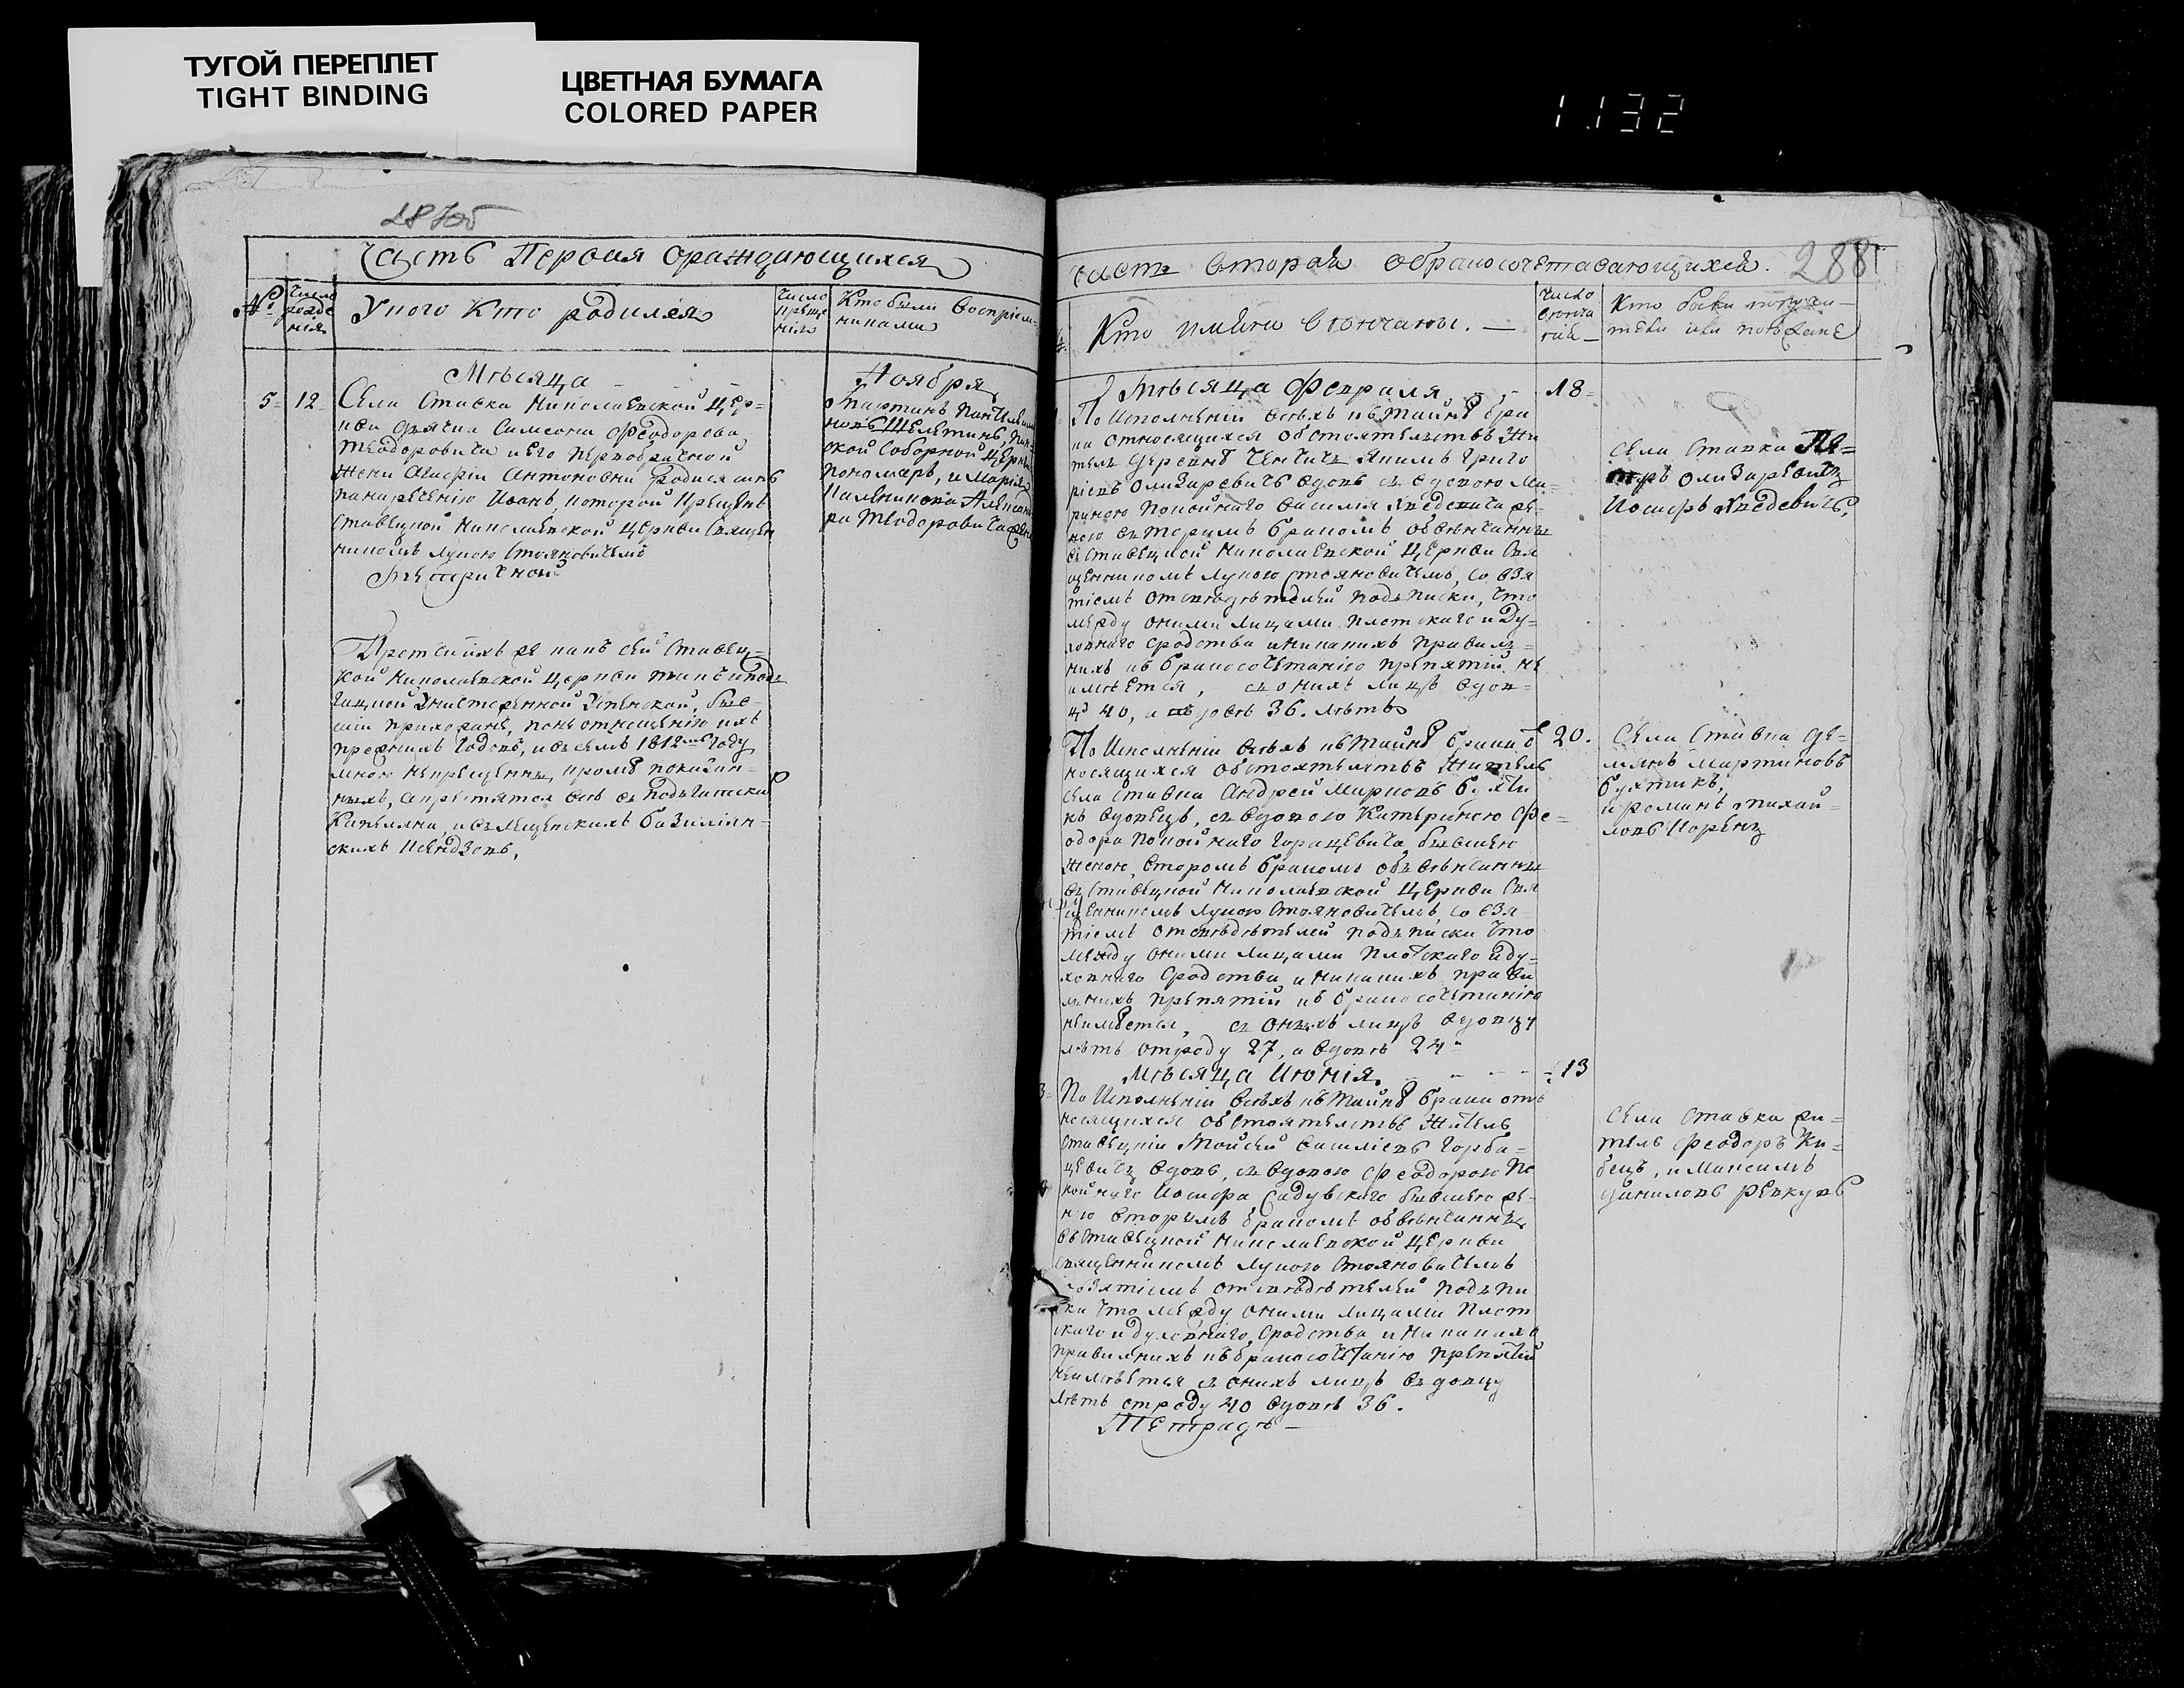 ТУГОЙ ПЕРЕПЛЕТ
TIGHT BINDING
ЦВЕТНАЯ БУМАГА
COLORED PAPER
1132
287об
Часть Первая ораждающихся
№
Число рожденія
У кого Кто родился
Число крещенія
Кто были восприемниками
Мѣсяца Ноября
5 12
Села Ставка Николаевской Цер=
кви дьячка Симеона Феодорова
Теодоровича и его первобрачной
жени Агафіи Антоновни родися синъ
панаречению Иоанъ, которой крещенъ
Ставецкой Николаевской Церкви Священ
никомъ Лукою Стояновичемъ
Мартинъ
ской Соборной Церкви
пономаръ, и Марія
Теодоровича
Николаевской церкви
прихожанъ
прежнихъ Годовъ, и въ семъ 1812мъ Году
мною некрещенны, кромѣ показан=
ныхъ, а крестятся всѣ въ
Часть вторая обракосочетавающихся.
288
Кто имянно вѣнчаны.
Число вѣнчаній
Кто были поручители или поѣзжане
Мѣсяца Февраля 18
По Исполненіи всѣхъ къ тайнѣ бра
ка относящихся обстоятелствъ Жи
тель деревнѣ Якимъ Григо
ріевъ Олизаревичъ вдовъ съ вдовою Ма=
риною покойнаго Василія
ною вторимъ бракомъ обвѣнчанны
въ Ставецкой Николаевской Церкви Свя
щенникомъ Лукою Стояновичемъ, со взя
тіемъ отсвѣдѣтелей подписки, что
между оними лицами плотскаго и Ду=
ховнаго сродства и никакихъ правил=
нихъ къ бракосочетанію препятій не
имѣется, съ онихъ лицъ вдов=
цу 40, а вдовѣ 36. лѣтъ
Села Ставка Пе=
тръ Олизаревичъ
Иосифъ
20.
По Исполненіи всѣхъ къ тайнѣ брака о
носящихся обстоятелствъ Житель
села Ставка Андрей Марковъ Бухти
къ вдовецъ, съ вдовою Катериною Фе=
одора покойнаго Горацевича бывшею
женою, второмъ бракомъ обвѣнчанны
въ Ставецкой Николаевской Церкви Свя
щенникомъ Лукою Стояновичемъ, со взя=
тіемъ отсвѣдѣтелей подписки что
между оними лицами плотскаго и ду=
ховнаго сродства и никакихъ прави
лнихъ препятій къ бракосочетанію
неимѣется, съ онихъ лицъ вдовцу
лѣтъ отроду 27, а вдовѣ 24
Села Ставка Де=
мянъ Мартиновъ
Бухтикъ,
и романъ михай=
ловъ Коренц
Мѣсяца Июнія 13
3
По Исполненіи всѣхъ къ тайнѣ брака отъ
носящихся обстоятелствъ Житель
Ставецкій Мойсей Василіевъ Горба=
цевичъ вдовъ, съ вдовою Феодорою по
койнаго Иосифа Садувскаго бывшею же=
ною вторымъ бракомъ обвѣнчанны
въ Ставецкой Николаевской Церкви
священникомъ Лукою Стояновичемъ
совзятіемъ отсвѣдѣтелей подпи
ски что между оними лицами плот
скаго и духовнаго сродства и никакихъ
правилнихъ къ бракосочетанію препятій
неимѣется съ онихъ лицъ вдовцу
лѣтъ строду 40 вдовѣ 36.
Села Ставка жи=
тель Феодоръ Ку=
бецъ, и Максимъ
Даниловъ Ревкувъ
Тетрадь